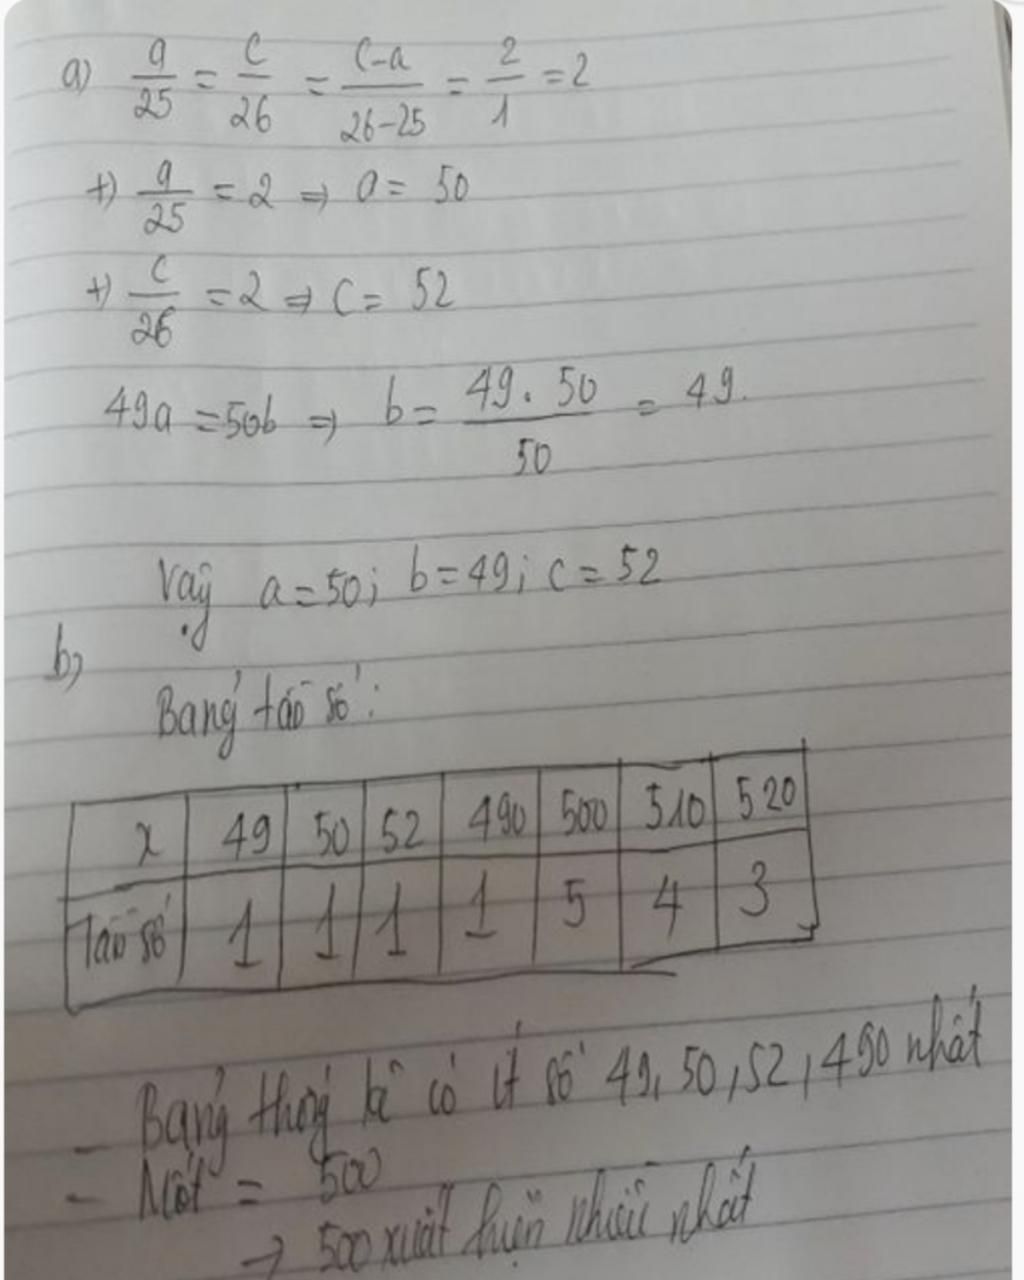 a) a/25 = c/26 = c-a/26-25 = 2/1 = 2
+) a/25 = 2 ⇒ a = 50
+) c/26 = 2 ⇒ c = 52
49a = 50b ⇒ b = 49.50/50 = 49.
Vậy a = 50; b = 49; c = 52
b)
Bảng tần số:
x 49 50 52 490 500 510 520
Tần số 1 1 1 1 5 4 3
- Bảng thống kê có ít số 49, 50, 52, 490 nhất
- Mốt = 500
→ 500 xuất hiện nhiều nhất